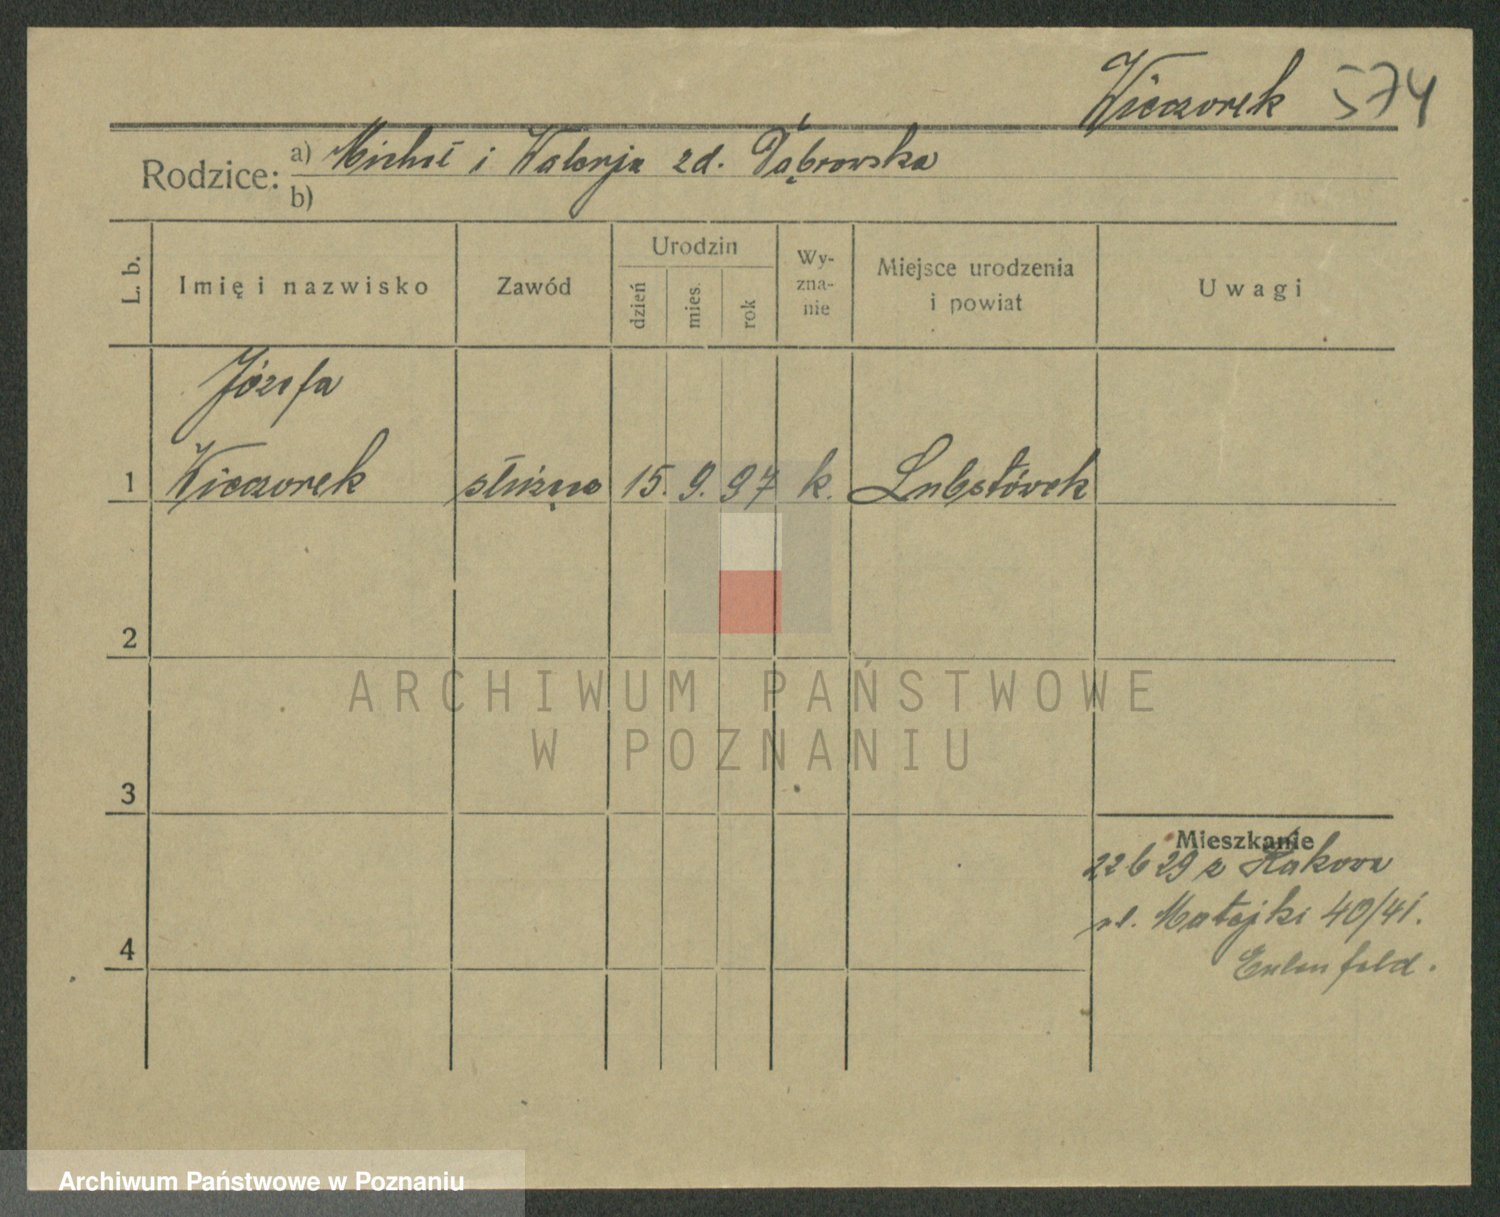 Wieczorek 574
Rodzice: a) Michał i Walerja zd. Dąbrowska
b)
L. b. Imię i nazwisko Zawód Urodzin dzień mies. rok Wy-zna-nie Miejsce urodzenia i powiat Uwagi
Józefa
1 Wieczorek służąca 15. 9. 97 k. Lubstówek
2
ARCHIWUM PAŃSTWOWE
W POZNANIU
3
Mieszkanie
22 6 29 z Krakowa
ul. Matejki 40/41.
4
Eulenfeld.
Archiwum Państwowe w Poznaniu